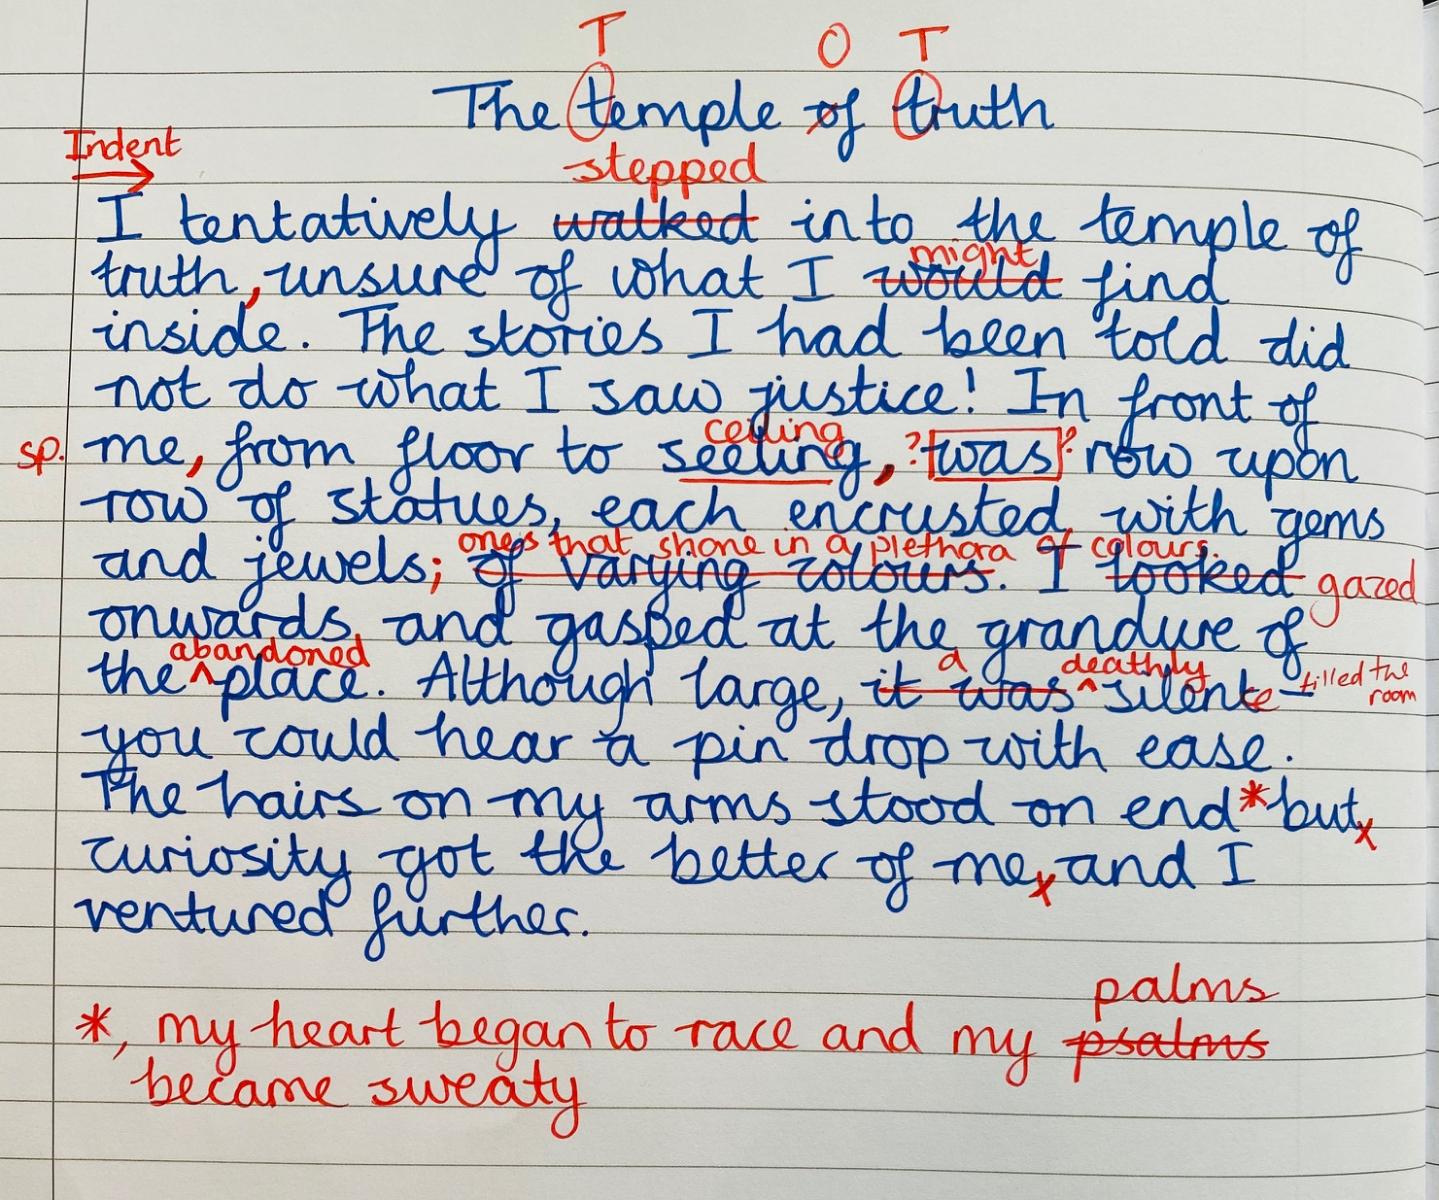 T O T
The temple of truth
Indent
stepped
I tentatively walked into the temple of
might
truth, unsure of what I would find
inside. The stories I had been told did
not do what I saw justice! In front of
ceiling
sp. me, from floor to seeling, ?was? row upon
row of statues, each encrusted, with gems
ones that shone in a plethora of colours.
and jewels; of varying colours. I looked gazed
onwards, and gasped at the grandure of
abandoned a deathly
the ^ place. Although large, it was ^ silent ce – filled the room
you could hear a pin drop with ease.
The hairs on my arms stood on end * but, x
curiosity got the better of me, x and I
ventured further.
palms
*, my heart began to race and my psalms
became sweaty